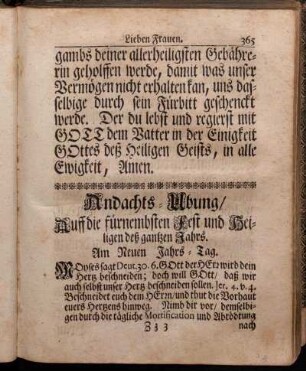 Lieben Frauen. 365
gambs deiner allerheiligsten Gebähre-
rin geholffen werde, damit was unser
Vermögen nicht erhalten kan, uns das-
selbige durch sein Fürbitt geschenckt
werde. Der du lebst und regierst mit
GOTT dem Vatter in der Einigkeit
GOttes deß Heiligen Geists, in alle
Ewigkeit, Amen.
Andachts-Ubung/
Auff die fürnembsten Fest und Hei-
ligen deß gantzen Jahrs.
Am Neuen Jahrs-Tag.
MOyses sagt Deut. 30. 6. GOtt der HErr wird dein
Hertz beschneiden; doch will GOtt, daß wir
auch selbst unser Hertz beschneiden sollen. Jer. 4. v. 4.
Beschneidet euch dem HErrn/ und thut die Vorhaut
euers Hertzens hinweg. Nimb dir vor/ demselbi-
gen durch die tägliche Mortification und Abtödtung
Z 3 3 nach